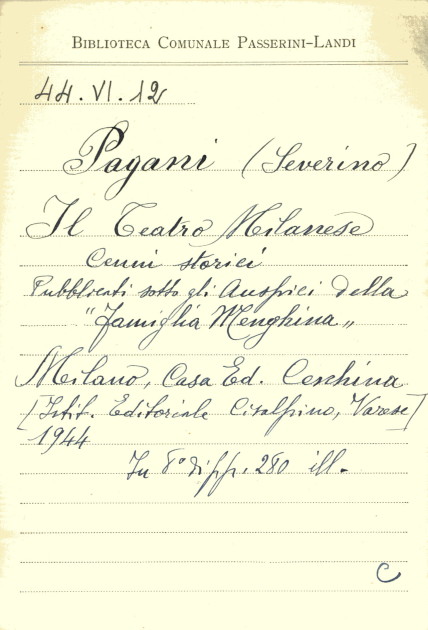 BIBLIOTECA COMUNALE PASSERINI-LANDI
44.VI.12
Pagani (Severino)
Il Teatro Milanese
Cenni storici
Pubblicati sotto gli Auspici della
"Famiglia Meneghina"
Milano, Casa Ed. Ceschina
[Istit. Editoriale Cisalpino, Varese]
1944
In 8° di pp. 280 ill.
C